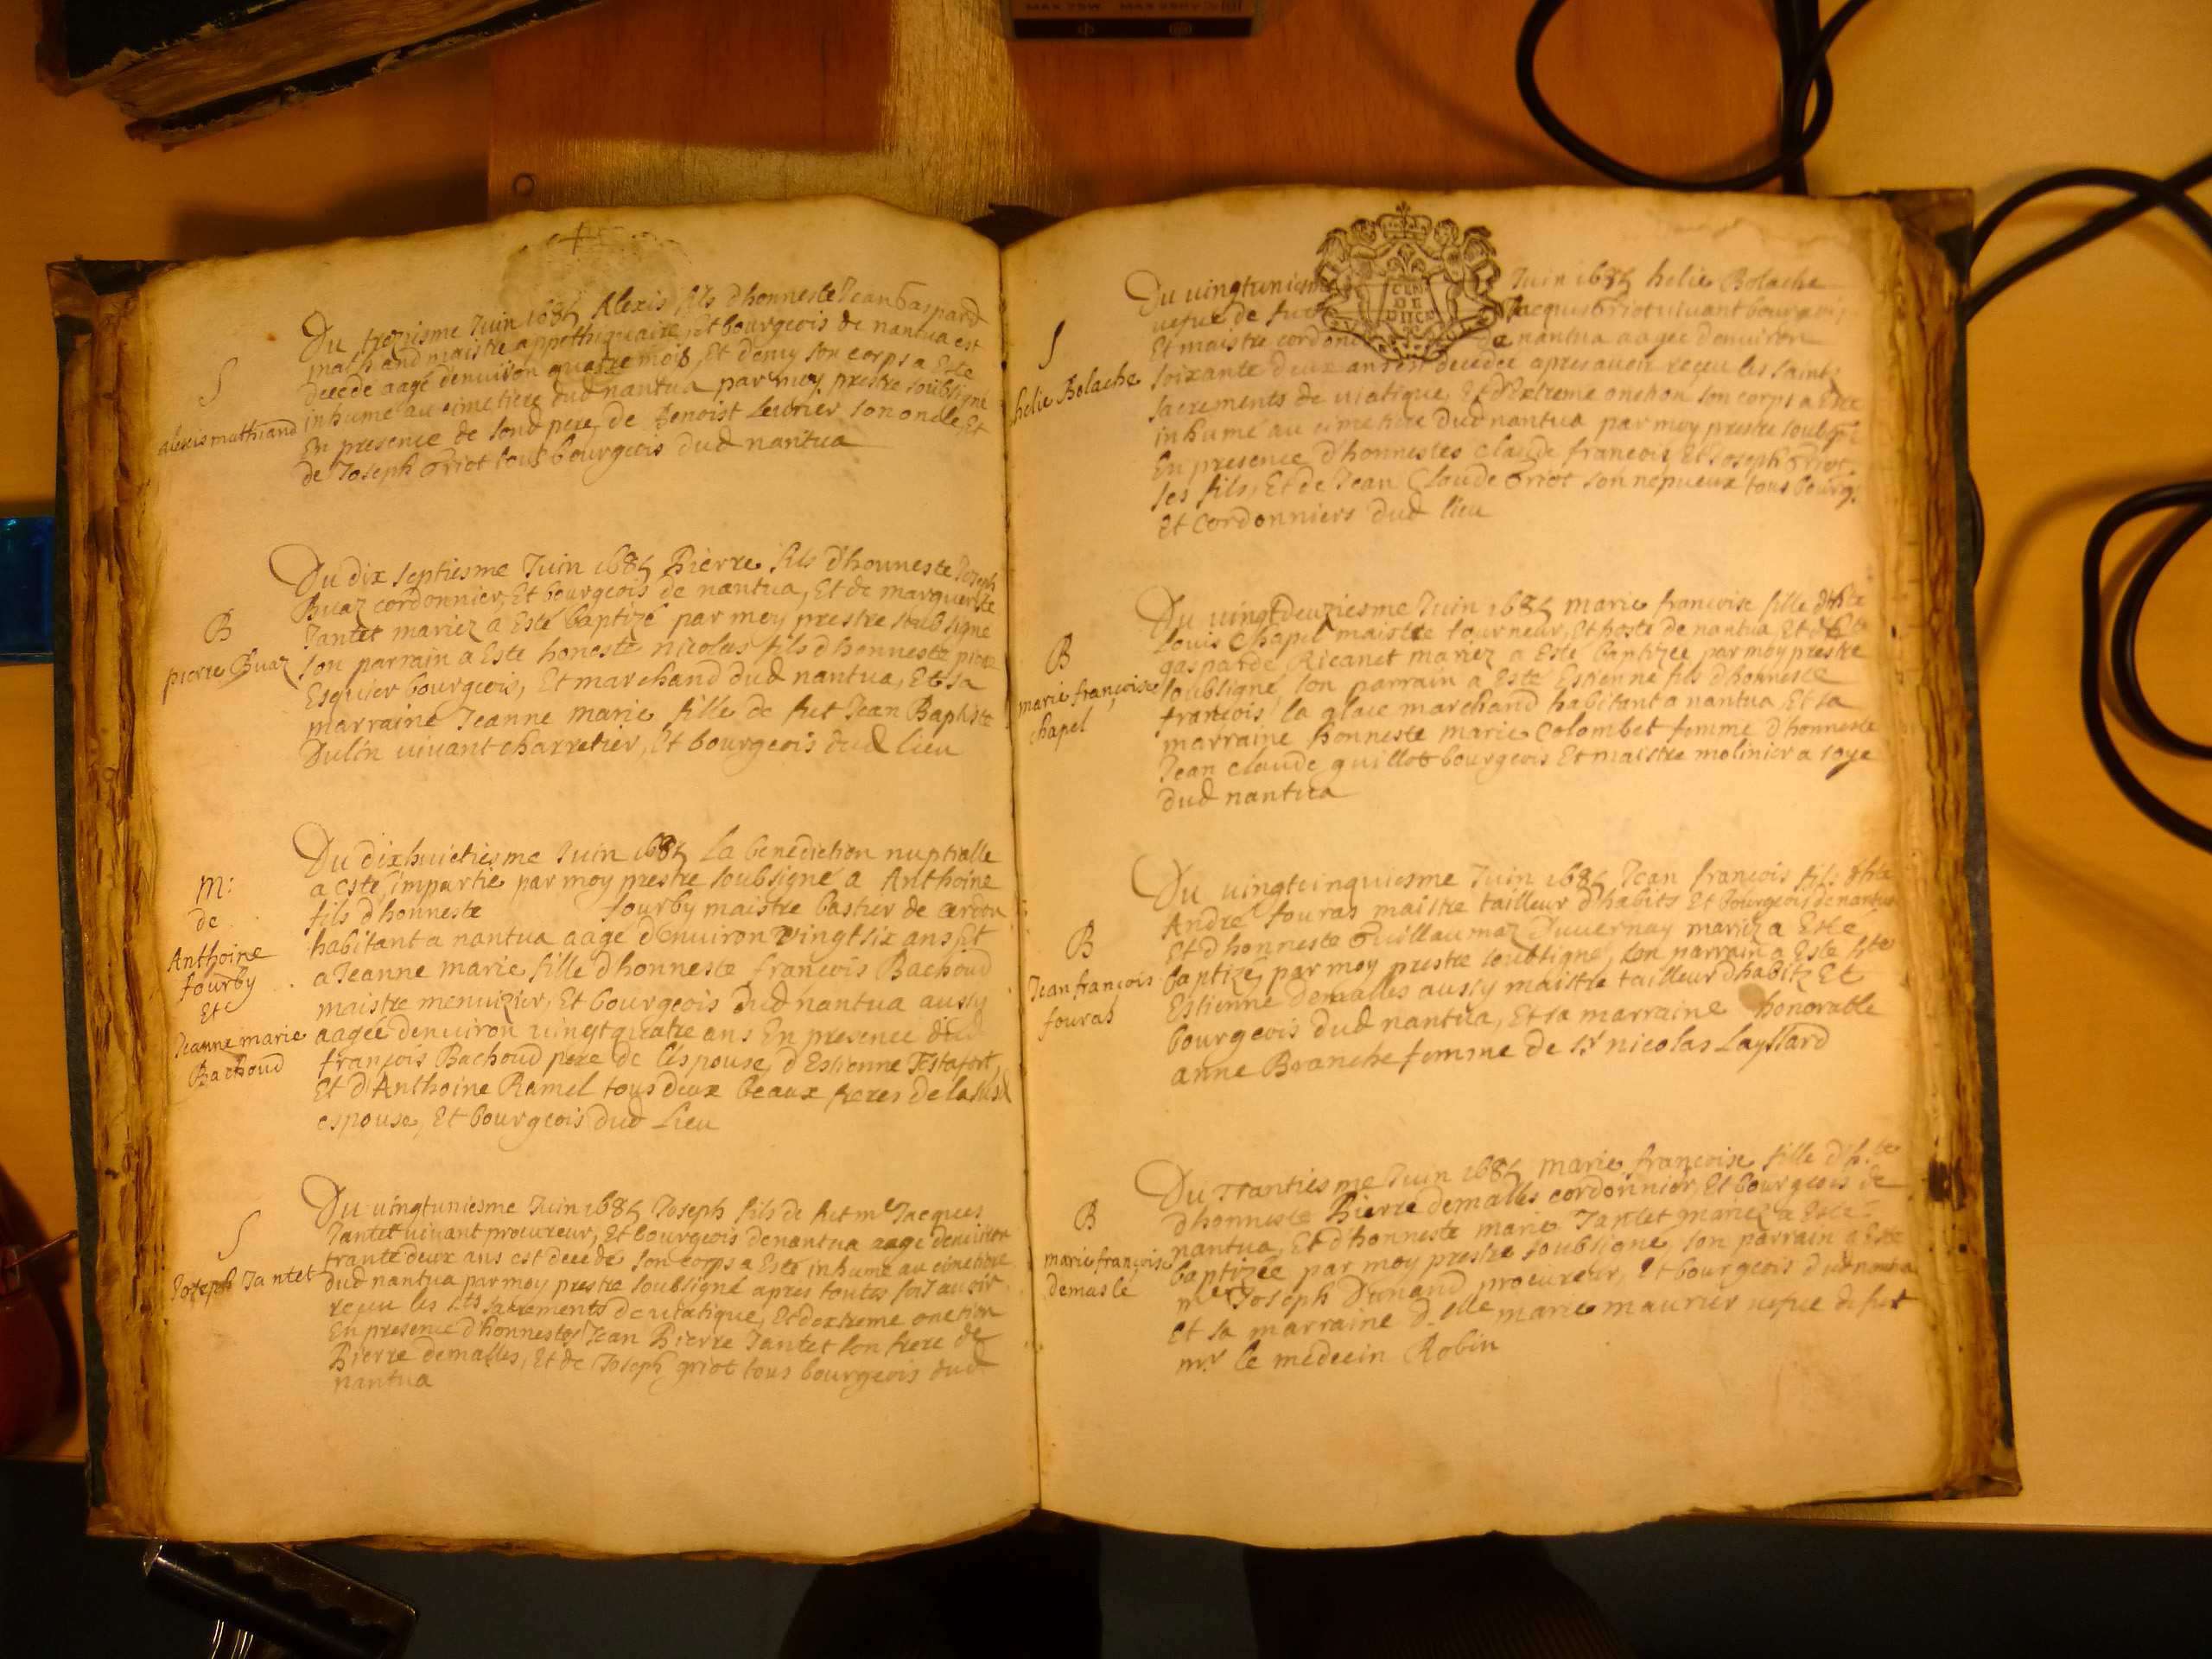 S
alexis mathiand
Du trezisme Juin 1685 Alexis fils d'honneste Jean Gaspard
mathiand maistre appothiquaire, Et bourgeois de nantua est
decedé aagé denuiron quatre mois, Et demy son corps a Esté
inhumé au cimetiere dud nantua par moy prestre soubsigné
En presence de sond pere, de Benoist son oncle, Et
de Joseph Griot tous bourgeois dud nantua
B
pierre Buaz
Du dix septiesme Juin 1685 Pierre fils d'honneste Joseph
Buaz cordonnier, Et bourgeois de nantua, Et de marguerite
Jantet mariez a Esté baptizé par moy prestre soubsigné
son parrain a Esté honeste nicolas fils d'honneste pierre
Esquier bourgeois, Et marchand dud nantua, Et sa
marraine Jeanne marie fille de fut Jean Baptiste
vivant charretier, Et bourgeois dud lieu
m:
de
Anthoine
fourby
Et
Jeanne marie
Bachoud
Du dixhuictiesme Juin 1685 La benediction nuptialle
a esté impartie par moy prestre soubsigné a Anthoine
fils d'honneste fourby maistre bastier de cerdon
habitant a nantua aagé denuiron vingt six ans Et
a Jeanne marie fille d'honneste françois Bachoud
maistre menuizier, Et bourgeois dud nantua aussy
aagée denuiron uingt quatre ans En presence dud
françois Bachoud pere de l'espouse, d'Estienne Testafort,
Et d'Anthoine Ramel tous deux beaux freres de la susd
espouse, Et bourgeois dud Lieu
S
Joseph Jantet
Du uingtuniesme Juin 1685 Joseph fils de fut me Jacques
Jantet uiuant procureur, Et bourgeois de nantua aagé denuiron
trante deux ans est decedé son corps a Esté inhumé au cimetiere
dud nantua par moy prestre soubsigné apres toutes fois auoir
reçeu les Sts sacrements de uiatique, Et d'extreme onction
En presence d'honnestes Jean Pierre Jantet son frere de
Pierre demalles, Et de Joseph griot tous bourgeois dud
nantua
S
helie Bolache
Du uingtuniesme Juin 1685 helie Bolache
uefue de fut Jacques Griot uiuant bourgeois
Et maistre cordon de nantua aagée denuiron
soixante deux ans est decedée apres auoir reçeu les saints
sacrements de uiatique, Et d'Extreme onction son corps a Esté
inhumé au cimetiere dud nantua par moy prestre soubsigné
En presence d'honnestes Claude françois, Et Joseph Griot
ses fils, Et de Jean Claude Griot son nepueux tous bourgs
Et Cordonniers dud lieu
B
marie françoise
chapel
Du uingtdeuziesme Juin 1685 marie françoise fille d'hte
Louis Chapel maistre tourneur, Et hoste de nantua Et d'hte
gasparde Ricanet mariez a Esté baptizée par moy prestre
soubsigné, son parrain a Esté Estienne fils d'honneste
françois la glace marchand habitant a nantua, Et sa
marraine honneste marie Colombet femme d'honneste
Jean claude guillot bourgeois Et maistre molinier a soye
dud nantua
B
Jean françois
fouras
Du uingtcinquiesme Juin 1685 Jean françois fils d'hte
André fouras maistre tailleur d'habits Et Bourgeois de nantua
Et d'honneste Guillaumaz Duuernay mariez a Esté
baptizé, par moy prestre soubsigné, son parrain a Esté hte
Estienne demalles aussy maistre tailleur d'habitz Et
bourgeois dud nantua, Et sa marraine honorable
anne Branche femme de Sr nicolas Layllard
B
marie françoise
demasle
Du Trantiesme Juin 1685 marie françoise fille d'h.te
d'honneste Pierre demalles cordonnier, Et bourgeois de
nantua, Et d'honneste marie Jantet mariez a Esté
baptizée par moy prestre soubsigné, son parrain a Esté
me Joseph Dunand procureur, Et bourgeois dud nantua
et sa marraine d.elle marie maurier uefue de fut
mr le medecin Robin